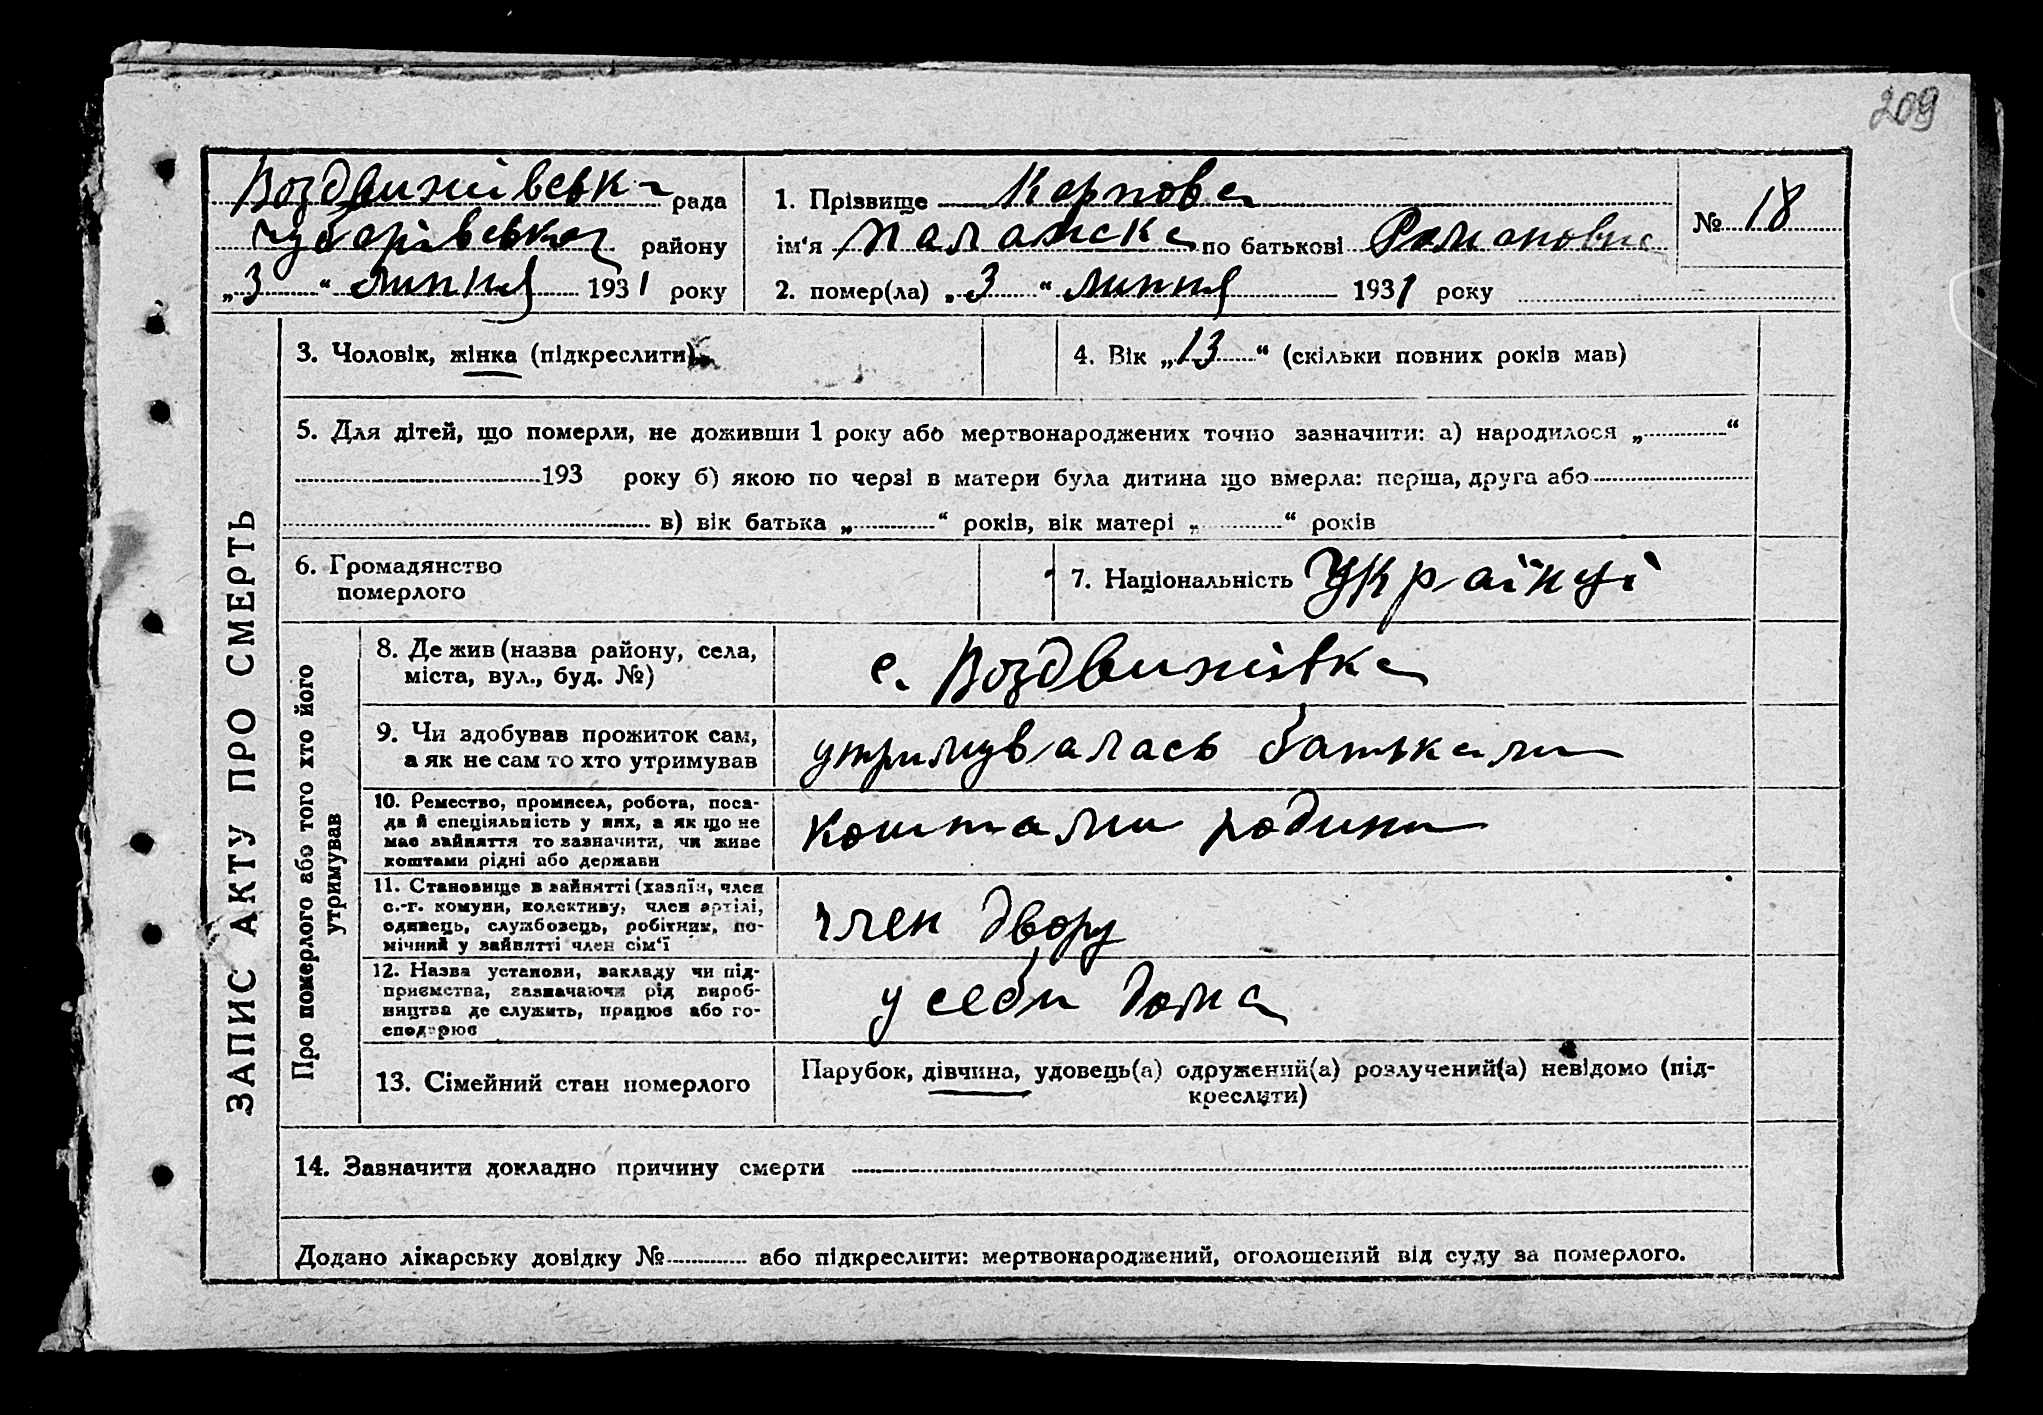 209
Воздвижівська рада
Чубарівськог району
„3“ липня 1931 року
1. Прізвище Карпова
ім'я Палажка по батькові Романовна
2. помер(ла) „3“ липня 1931 року
№ 18
ЗАПИС АКТУ ПРО СМЕРТЬ
3. Чоловік, жінка (підкреслити)
4. Вік „13“ (скільки повних років мав)
5. Для дітей, що померли, не доживши 1 року або мертвонароджених точно зазначити: а) народилося „ “
193 року б) якою по черзі в матери була дитина що вмерла: перша, друга або
в) вік батька „ “ років, вік матері „ “ років
6. Громадянство
померлого
7. Національність Українці
Про померлого або того хто його
утримував
8. Де жив (назва району, села,
міста, вул., буд. №)
с. Воздвижівка
9. Чи здобував прожиток сам,
а як не сам то хто утримував
утримувалась батьками
10. Ремество, промисел, робота, поса-
да й спеціяльність у них, а як що не
має зайняття то зазначити, чи живе
коштами рідні або держави
коштами родини
11. Становище в зайнятті (хазяїн, член
с.-г. комуни, колективу, член артілі,
одинець, службовець, робітник, по-
мічний у зайнятті член сім'ї
член двору
12. Назва установи, закладу чи під-
приємства, зазначаючи рід вироб-
ництва де служить, працює або го-
сподарює
у себи дома
13. Сімейний стан померлого
Парубок, дівчина, удовець(а) одружений(а) розлучений(а) невідомо (під-
креслити)
14. Зазначити докладно причину смерти
Додано лікарську довідку № або підкреслити: мертвонароджений, оголошений від суду за померлого.